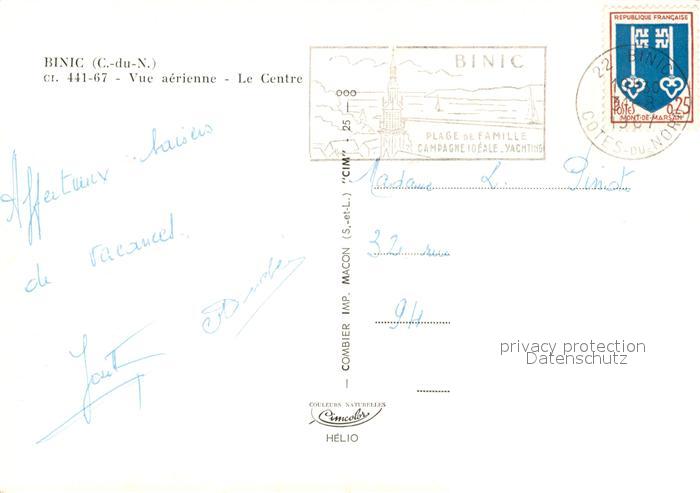 BINIC (C.-du-N.)
CI. 441-67 - Vue aérienne - Le Centre
BINIC
PLAGE DE FAMILLE
CAMPAGNE IDÉALE - YACHTING
REPUBLIQUE FRANÇAISE
Postes 0,25
MONT-DE-MARSAN
22 BINIC
1967
COTES-DU-NORD
Affectueux baisers
de vacances.
Madame L. Pinot
32 rue
94
COMBIER IMP. MACON (S.-et-L.) "CIM" - 25 - 000
privacy protection
Datenschutz
COULEURS NATURELLES
Cimcolor
HÉLIO